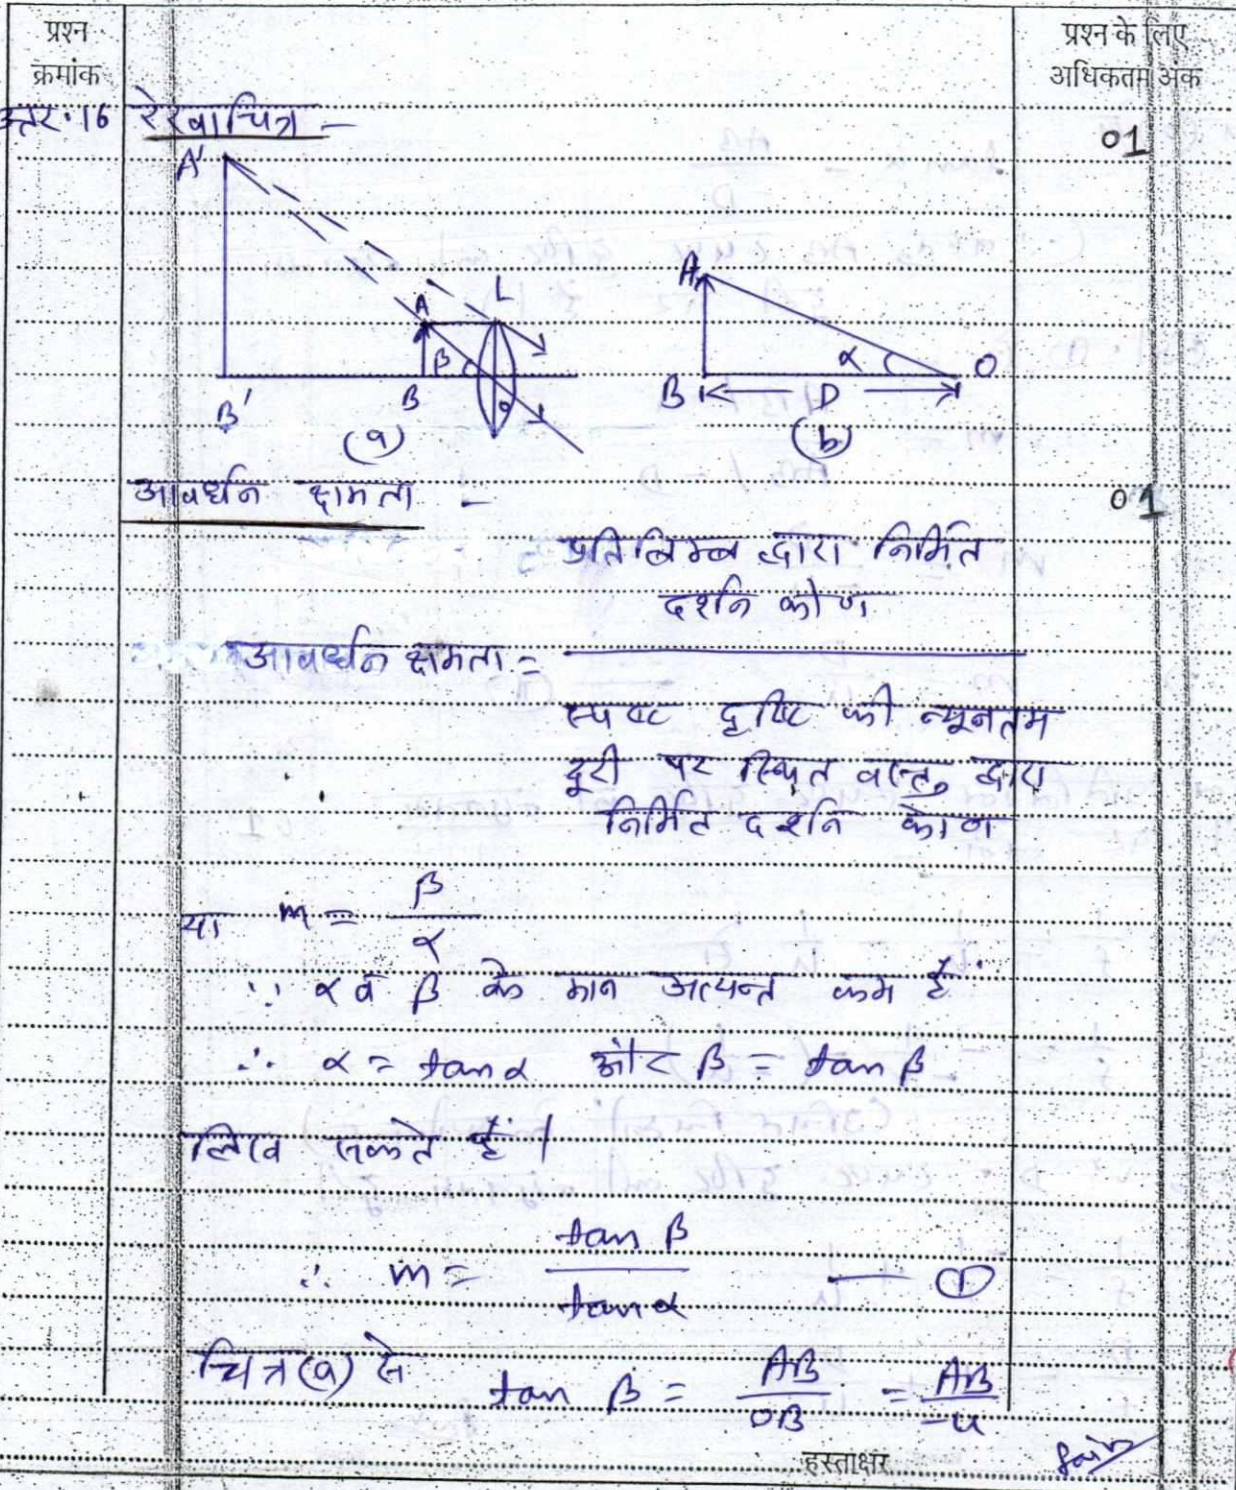 प्रश्न
क्रमांक
प्रश्न के लिए
अधिकतम अंक
उत्तर.16 रेखाचित्र – 01
A'
A L
β
B' B o
(a)
A
α O
B D
(b)
आवर्धन क्षमता – 01
प्रतिबिम्ब द्वारा निर्मित
दर्शन कोण
आवर्धन क्षमता =
स्पष्ट दृष्टि की न्यूनतम
दूरी पर स्थित वस्तु द्वारा
निर्मित दर्शन कोण
या m = β / α
∵ α व β के मान अत्यन्त कम हैं
∴ α = tan α और β = tan β
लिख सकते हैं।
∴ m = tan β / tan α — ①
चित्र (a) से tan β = AB / OB = AB / -u
हस्ताक्षर